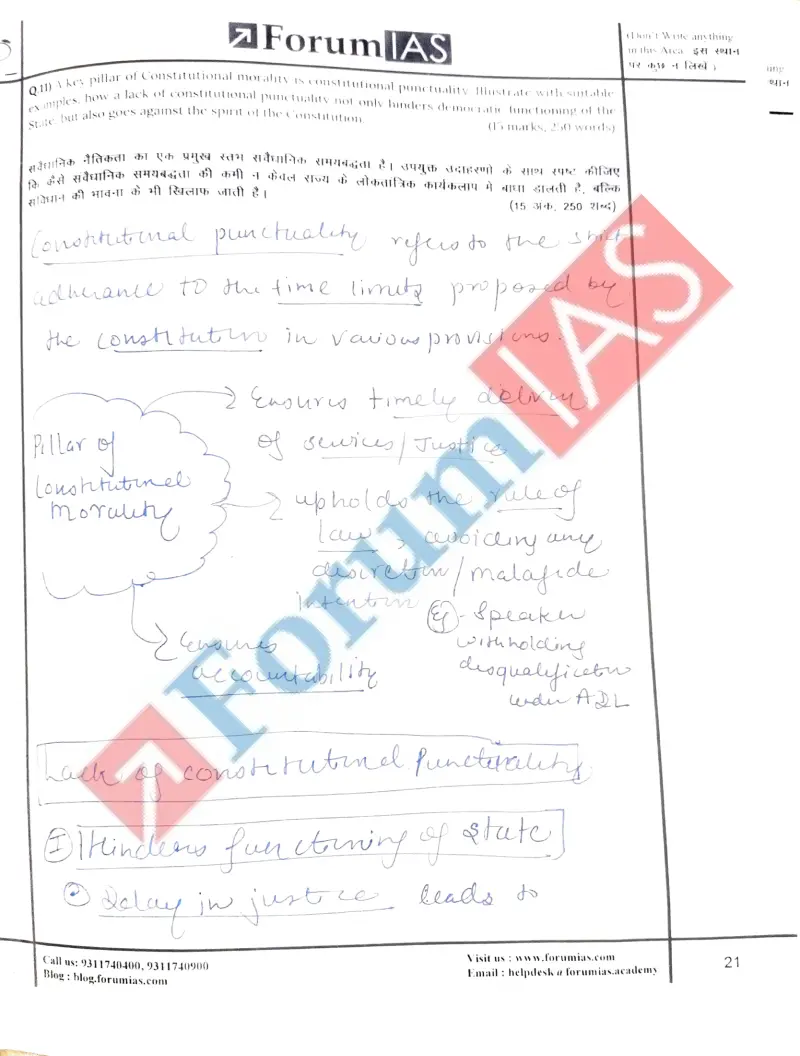 ForumIAS
(Don't Write anything
in this Area इस स्थान
पर कुछ न लिखें)
any
थान
Q.11) A key pillar of Constitutional morality is constitutional punctuality. Illustrate with suitable
examples, how a lack of constitutional punctuality not only hinders democratic functioning of the
State, but also goes against the spirit of the Constitution.
(15 marks, 250 words)
संवैधानिक नैतिकता का एक प्रमुख स्तंभ संवैधानिक समयबद्धता है। उपयुक्त उदाहरणों के साथ स्पष्ट कीजिए
कि कैसे संवैधानिक समयबद्धता की कमी न केवल राज्य के लोकतांत्रिक कार्यकलाप में बाधा डालती है, बल्कि
संविधान की भावना के भी खिलाफ जाती है।
(15 अंक, 250 शब्द)
Constitutional punctuality refers to the strict
adherance to the time limits proposed by
the constitution in various provisions.
Pillar of
Constitutional
Morality
Ensures timely delivery
of services/Justice
upholds the rule of
law, avoiding any
discretion/malafide
intention
Eg - Speaker
withholding
disqualification
under ADL
Ensures
accountability
Lack of constitutional Punctuality
I Hinders functioning of State
Delay in justice leads to
ForumIAS
Call us: 9311740400, 9311740900
Blog : blog.forumias.com
Visit us : www.forumias.com
Email : helpdesk@forumias.academy
21